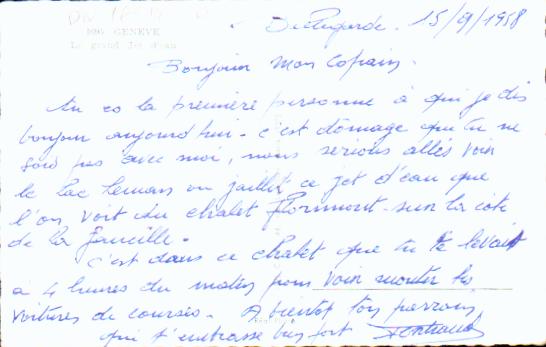 Bellegarde. 15/9/1958
896 GENÈVE
Le grand Jet d'eau
Bonjour Mon Copain.
tu es la première personne à qui je dis
bonjour aujourd'hui - c'est domage que tu ne
sois pas avec moi, nous serions allés voir
le Lac Leman ou jaillit ce jet d'eau que
l'on voit du chalet Florimont sur la côte
de la Faucille -
c'est dans ce chalet que tu te levait
à 4 heures du matin pour voir monter les
voitures de courses. A bientot ton parrain
qui t'embrasse bien fort